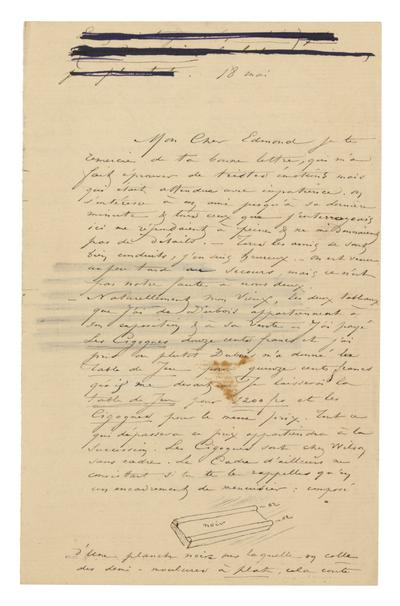 18 mai
Mon Cher Edmond je te
remercie de ta bonne lettre, qui m'a
fait éprouver de tristes émotions mais
qui était attendue avec impatience. on
s'intéresse à un ami jusqu'à sa dernière
minute & tous ceux que j'interrogeais
ici me répondaient à peine & ne me donnaient
pas de détails. — tous les amis se sont
bien conduits, j'en suis heureux — on est venu
un peu tard au secours, mais ce n'est
pas notre faute à nous deux.
— Naturellement mon vieux, les deux tableaux
que j'ai de Dubois appartiennent à
son exposition & à sa vente — J'ai payé
les Cigognes douze cents francs et j'ai
pris ou plutôt Dubois m'a donné la
table de Jeu pour quinze cents francs
qu'il me devait. Je laisserai la
table de Jeu pour 1200 frs et les
Cigognes pour le même prix. Tout ce
qui dépassera ce prix appartiendra à la
succession. Les Cigognes sont chez Wilson
sans cadre. Le Cadre d'ailleurs ne
consistait si tu te le rappelles qu'en
un encadrement de menuisier : composé
or
noir or
D'une planche noire sur laquelle on colle
des demi-moulures à plat, cela coûte